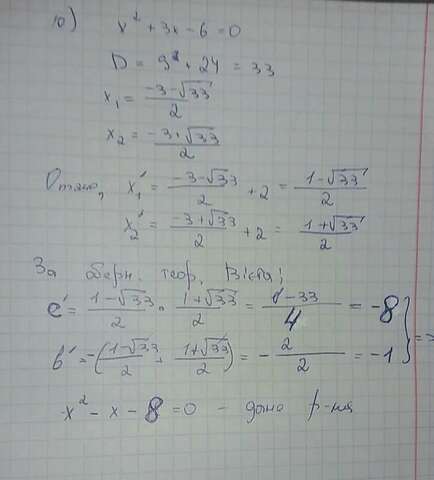 10) x² + 3x - 6 = 0
D = 9 + 24 = 33
x₁ = (-3-√33)/2
x₂ = (-3+√33)/2
Отже, x₁' = (-3-√33)/2 + 2 = (1-√33)/2
x₂' = (-3+√33)/2 + 2 = (1+√33)/2
За оберн. теор. Вієта:
c' = (1-√33)/2 · (1+√33)/2 = (1-33)/4 = -8
b' = -((1-√33)/2 + (1+√33)/2) = -2/2 = -1 } =>
x² - x - 8 = 0 - дана р-ня